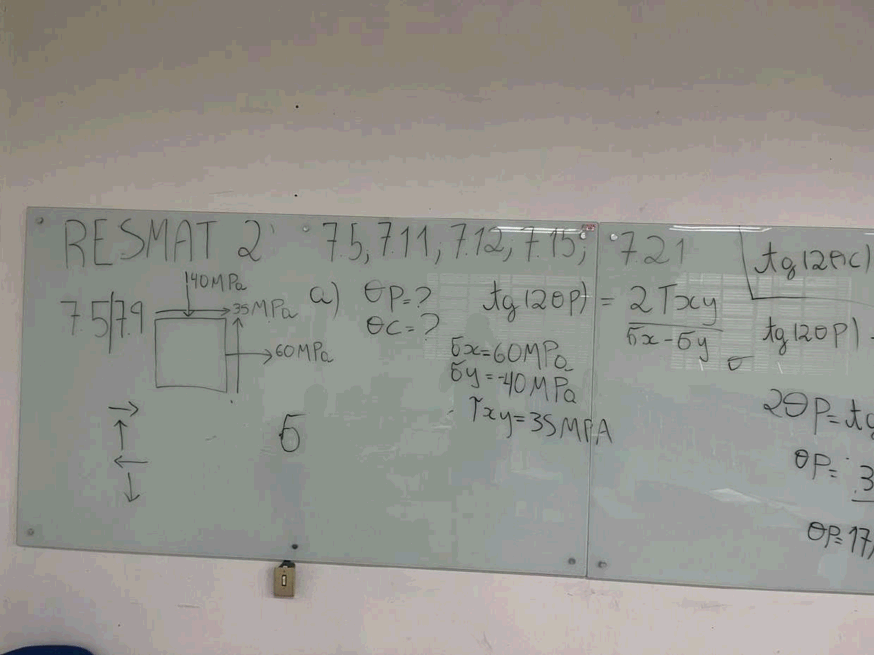 RESMAT 2 7.5, 7.11, 7.12, 7.15; 7.21
7.5/7.9
40MPa
35MPa
60MPa
a) θP=?
θC=?
tg(2θP) = 2Txy
σx-σy
σx=60MPa
σy=-40MPa
Txy=35MPA
σ
σ
tg(2θC)
tg(2θP)
2θP=tg
θP=
3
θP=17,